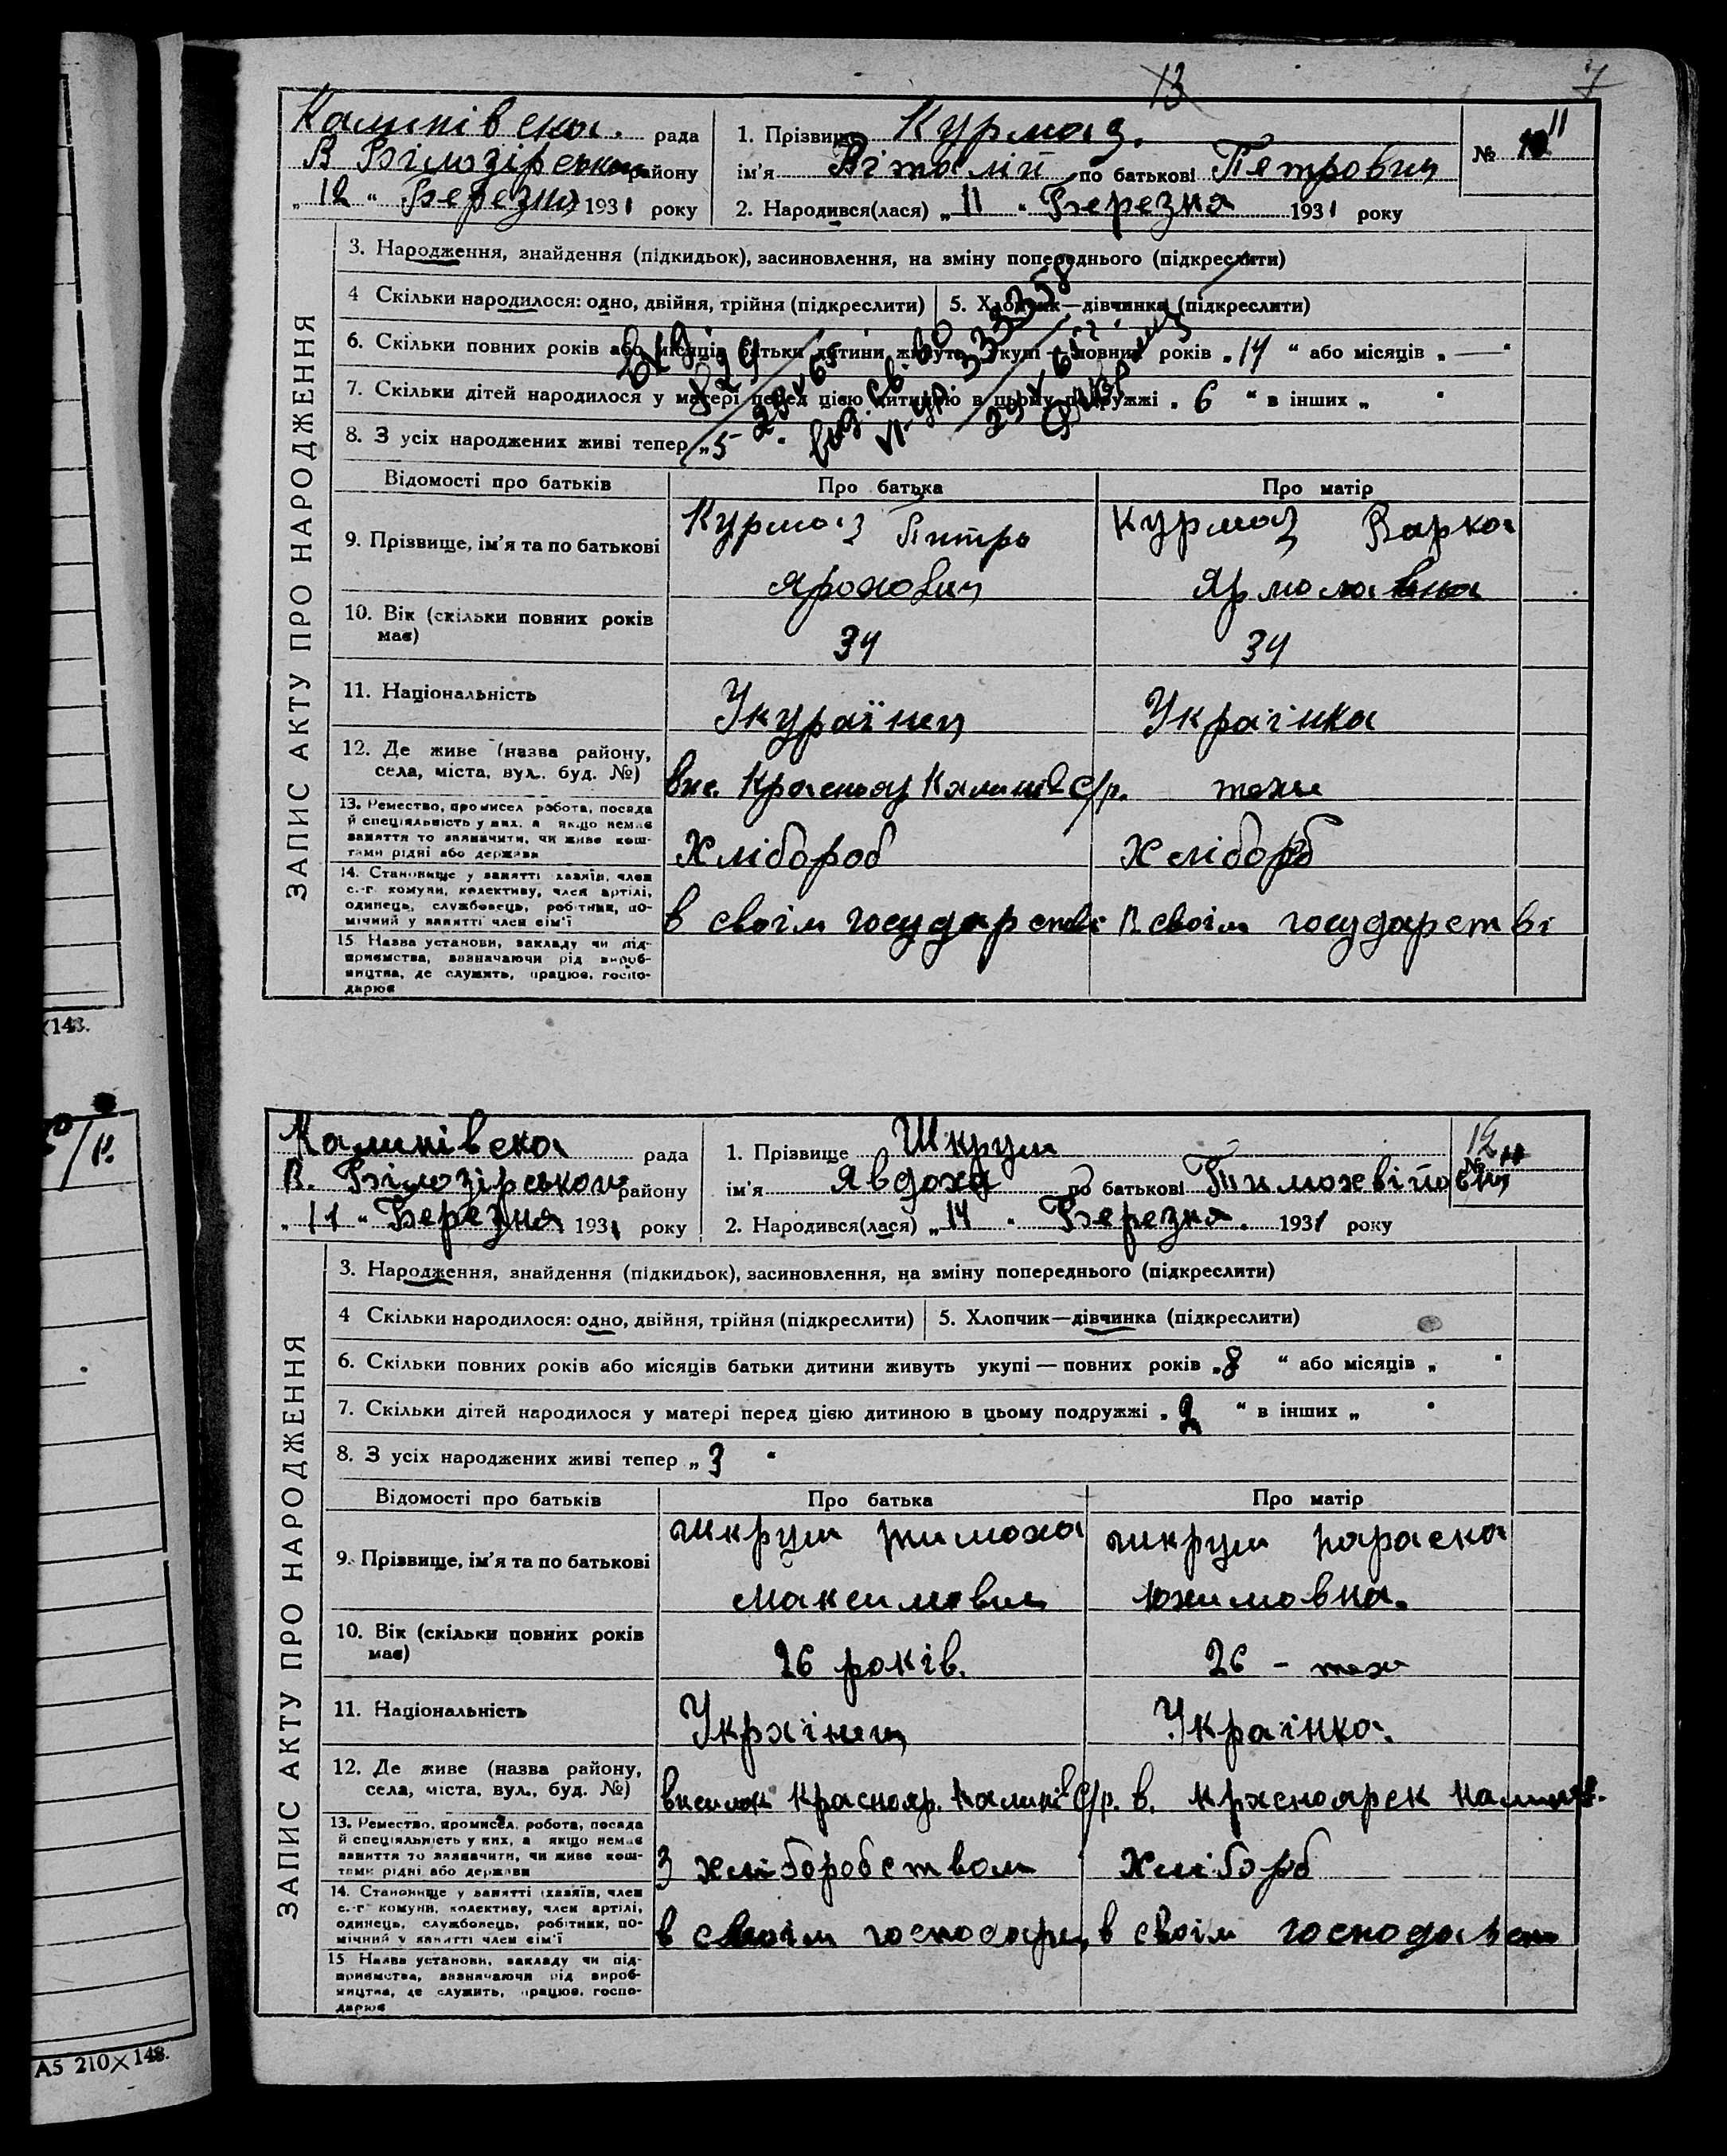 13 7
Калинівська. рада
В Білозірському району
„ 12 “ Березня 1931 року
1. Прізвище Курмаз.
ім'я Віталій по батькові Петрович
2. Народився(лася) „ 11 “ Березня 1931 року
№ 11
ЗАПИС АКТУ ПРО НАРОДЖЕННЯ
3. Народження, знайдення (підкидьок), засиновлення, на зміну попереднього (підкреслити)
4 Скільки народилося: одно, двійня, трійня (підкреслити)
5. Хлопчик—дівчинка (підкреслити)
6. Скільки повних років або місяців батьки дитини живуть укупі — повних років „ 14 “ або місяців „ — “
7. Скільки дітей народилося у матері перед цією дитиною в цьому подружжі „ 6 “ в інших „ “
8. З усіх народжених живі тепер „ 5 “
Відомості про батьків
Про батька
Про матір
9. Прізвище, ім'я та по батькові
Курмаз Питро
Ярохович
Курмаз Варка
Ярмолавна
10. Вік (скільки повних років має)
34
34
11. Національність
Укураїнец
Украінка
12. Де живе (назва району, села, міста, вул., буд. №)
вис. Краснояр Калинів С/р.
тоже
13. Ремество, промисел робота, посада й спеціяльність у них, а якщо немає заняття то зазначити, чи живе коштами рідні або держави
Хлібороб
Хлібороб
14. Становище у занятті хазяїн, член с.-г. комуни, колективу, член артілі, одинець, службовець, робітник, помічний у занятті член сім'ї
в своім государстві
В своім государстві
15 Назва установи, закладу чи підприємства, зазначаючи рід виробництва, де служить, працює, господарює
Калинівска рада
В. Білозірському району
„ 11 “ Березня 1931 року
1. Прізвище Шкрум
ім'я Явдоха по батькові Тимохвійовна
2. Народився(лася) „ 14 “ Березня. 1931 року
№ 12
ЗАПИС АКТУ ПРО НАРОДЖЕННЯ
3. Народження, знайдення (підкидьок), засиновлення, на зміну попереднього (підкреслити)
4 Скільки народилося: одно, двійня, трійня (підкреслити)
5. Хлопчик—дівчинка (підкреслити)
6. Скільки повних років або місяців батьки дитини живуть укупі — повних років „ 8 “ або місяців „ “
7. Скільки дітей народилося у матері перед цією дитиною в цьому подружжі „ 2 “ в інших „ “
8. З усіх народжених живі тепер „ 3 “
Відомості про батьків
Про батька
Про матір
9. Прізвище, ім'я та по батькові
шкрум тимоха
максимович
шкрум параска
юхимовна.
10. Вік (скільки повних років має)
26 років.
26 - тож
11. Національність
Україінец
Украінка.
12. Де живе (назва району, села, міста, вул., буд. №)
виселок Краснояр. Калинів С/р.
в. Красноярск Калинів.
13. Ремество, промисел, робота, посада й спеціяльність у них, а якщо немає заняття то зазначити, чи живе коштами рідні або держави
З хліборобством
Хлібороб
14. Становище у занятті (хазяїн, член с.-г комуни, колективу, член артілі, одинець, службовець, робітник, помічний у занятті член сім'ї
в своім господарс
в своім господарст
15 Назва установи, закладу чи підприємства, зазначаючи рід виробництва, де служить, працює, господарює
×148.
с/р.
А5 210×148.